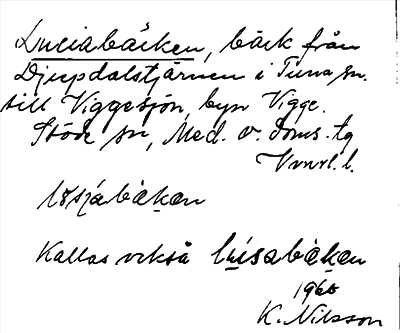 Luciabäcken, bäck från
Djupdalstjärnen i Tuna sn.
till Viggesjön, byn Vigge.
Stöde sn, Med. v. doms. tg
Vnrl. l.
kallas också lúsabäkan
1960
K. Nilsson